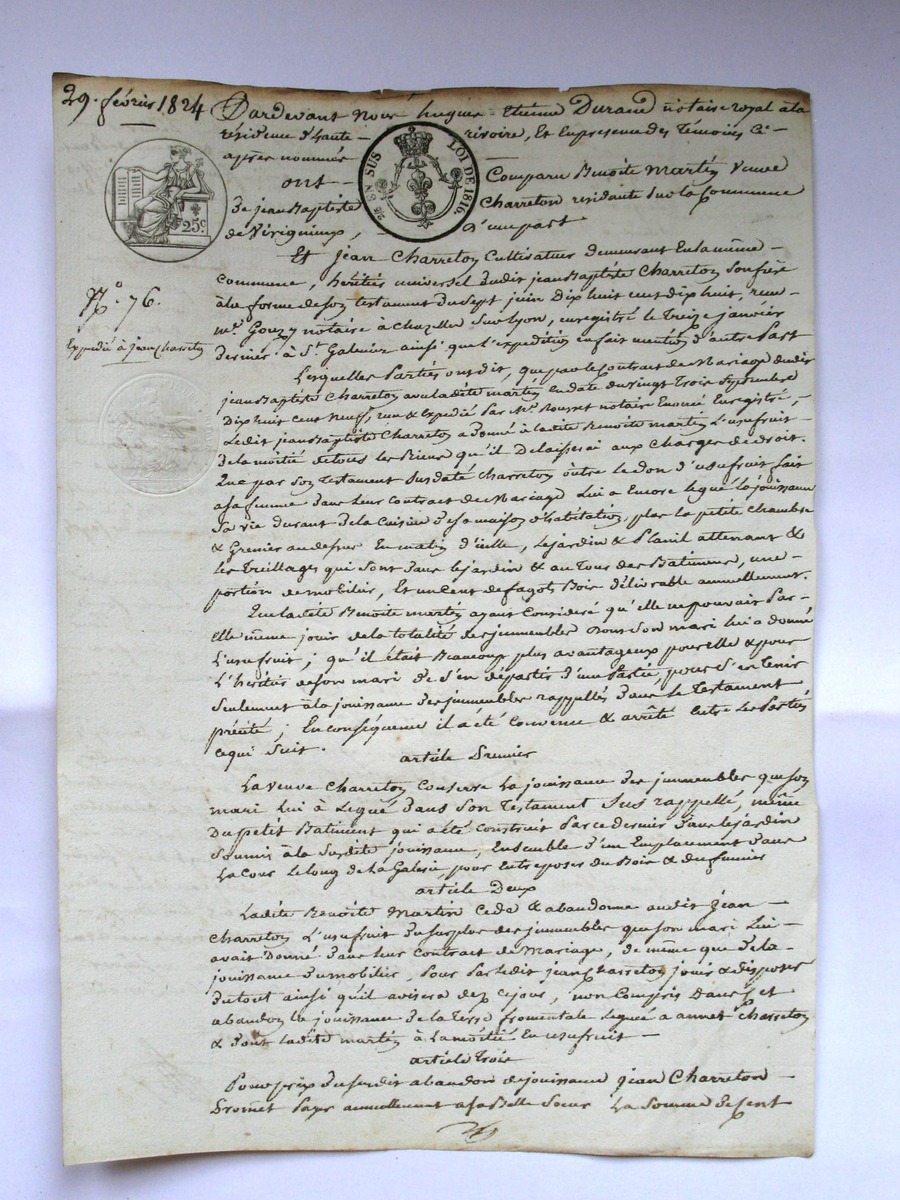 29. février 1824
Pardevant Nous hugues Etienne Durand notaire royal à la
résidence d'haute rivoire, Et En presence des Témoins Ci-
après nommés
ont Comparu Benoite Martin Veuve
De jean Baptiste Charreton residante sur la Commune
de Virigneux, d'une part
25c.
EN SUS
LOI DE 1816.
Et jean Charreton Cultivateur demeurant En la même
commune, héritier universel dudit jean Baptiste Charreton son frère
à la forme de son testament du sept juin Dix huit cent dix huit, reçu
N.° 76.
Me. Gouzy notaire à Chazelles Sur lyon, enregistré le Treize janvier
Expedié à jean Charreton
dernier à St. Galmier ainsi que l'expedition en fait mention d'autre Part
Lesquelles Parties ont dit, que par le Contract de Mariage dudit
jean Baptiste Charreton avec ladite martin En date du vingt Trois Septembre
Dix huit Cent Neuf, reçu & Expedié Par Me. Rousset notaire Enoncé Enregistré,
Ledit jean Baptiste Charreton a donné à ladite Benoite martin L'usufruit
de la moitié de tous les Biens qu'il Delaisserai aux Charges de droit.
Que par son Testament Susdaté Charreton outre le don d'usufruit fait
a sa femme dans leur Contract de Mariage Lui a Encore legué la jouissance
Sa vie durant de la Cuisine de sa maison d'habitation, plus la petite chambre
& Grenier au dessus En matin d'icelle, Le jardin & Plasil attenant &
les Treillages qui sont dans le jardin & au Tour des Batimens, une
portion de mobilier, Et un Cent de fagots Bois délivrable annuellement.
Que ladite Benoite martin ayant Consideré qu'elle ne pouvais Par
Elle même jouir de la totalité des jmmeubles Dont Son mari lui a donné
L'usufruit; qu'il était Beaucoup plus avantageux pour elle & pour
L'héritier de son mari de S'en départir d'une Partie, pour S'en tenir
Seulement à la jouissance des jmmeubles rappellés dans le Testament
précité; En conséquence il a été Convenu & arrêté Entre les Parties
ce qui Suit.
article Premier
La veuve Charreton Conserve La jouissance des jmmeubles que son
mari Lui à Legué dans Son Testament Sus rappellé, même
Du petit Batiment qui a été Construit Par ce dernier dans le jardin
Soumis à la Susdite jouissance, Ensemble d'un Emplacement dans
La Cour le long de la Galerie, pour Entreposer du Bois & du fumier
article Deux
Ladite Benoite Martin Cede & abandonne audit jean
Charreton L'usufruit du Surplus des jmmeubles que son mari Lui
avait Donné dans leur Contract de Mariage, de même que de la
jouissance du mobilier, Pour Par ledit jean Charreton jouir & disposer
du tout ainsi qu'il avisera dez Ce jour, non Compris Dans cet
abandon la jouissance de la Terre fromentale leguée a annet Charreton
& dont ladite martin à La moitié En usufruit
article Trois
Pour prix du susdit abandon de jouissance jean Charreton
Promet Payer annuellement a sa Belle Sœur La Somme de Cent